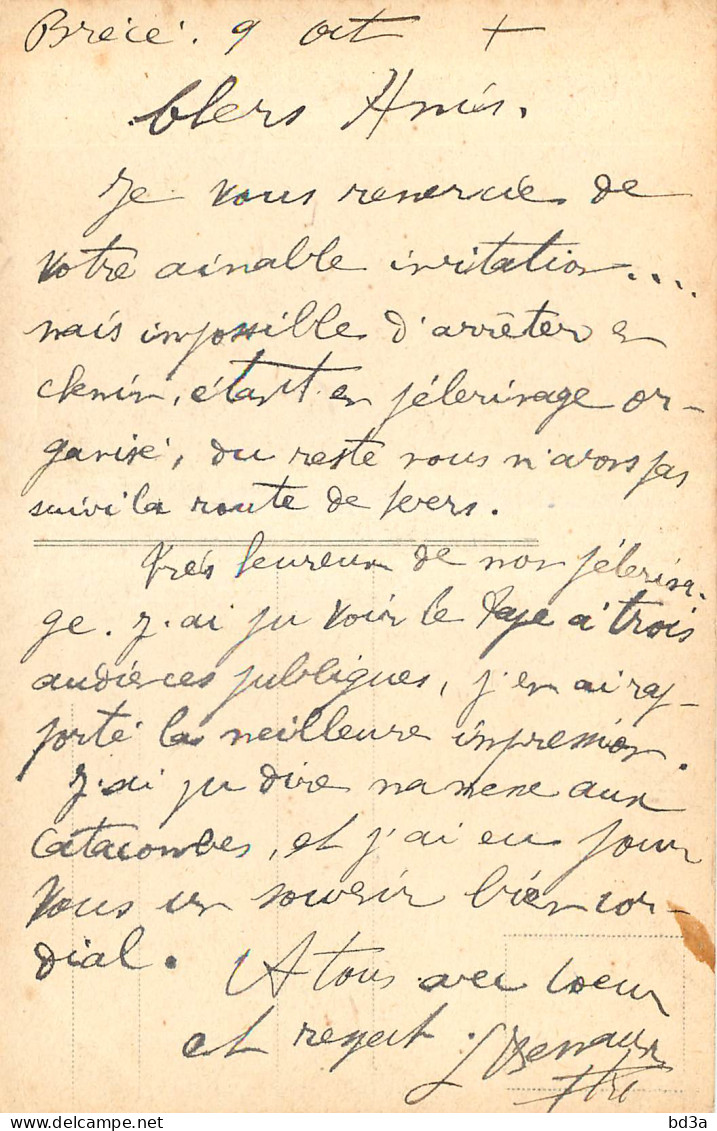 Brécé. 9 Oct +
Chers Amis.
Je vous remercie de
votre aimable invitation....
mais impossible d'arrêter en
chemin, étant en pélerinage or-
ganisé, du reste nous n'avons pas
suivi la route de
Très heureux de mon pélerina-
ge. J'ai pu voir le Pape à trois
audiences publiques, j'en ai rap-
porté la meilleure impression.
J'ai pu dire ma messe aux
Catacombes, et j'ai eu pour
vous un souvenir bien cor-
dial. A tous avec coeur
et respect.
bd3a